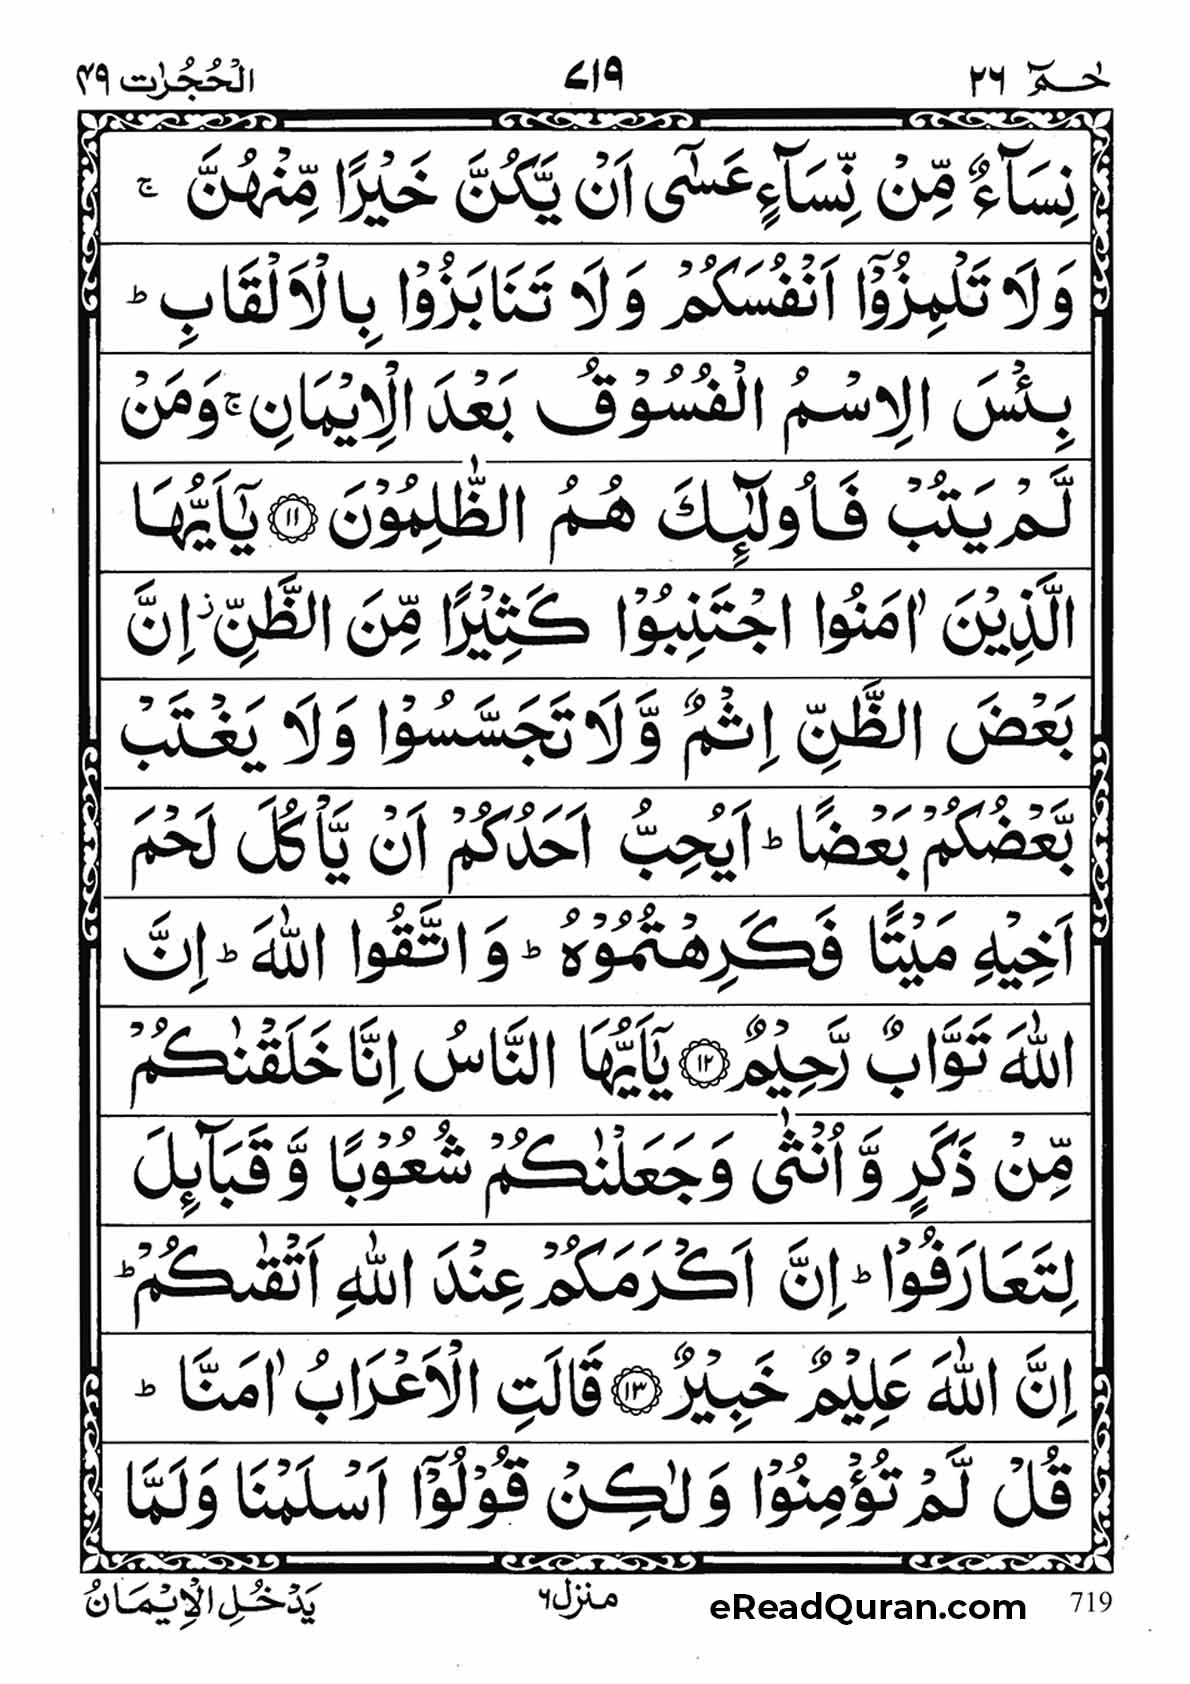 حٰمٓ ٢٦
٧١٩
الْحُجُرٰت ٤٩
نِسَآءٌ مِّنْ نِّسَآءٍ عَسٰٓى اَنْ يَّكُنَّ خَيْرًا مِّنْهُنَّ ۚ
وَلَا تَلْمِزُوْٓا اَنْفُسَكُمْ وَلَا تَنَابَزُوْا بِالْاَلْقَابِ ؕ
بِئْسَ الِاسْمُ الْفُسُوْقُ بَعْدَ الْاِيْمَانِ ۚ وَمَنْ
لَّمْ يَتُبْ فَاُولٰٓئِكَ هُمُ الظّٰلِمُوْنَ ۝۱۱ يٰٓاَيُّهَا
الَّذِيْنَ اٰمَنُوا اجْتَنِبُوْا كَثِيْرًا مِّنَ الظَّنِّ ز اِنَّ
بَعْضَ الظَّنِّ اِثْمٌ وَّلَا تَجَسَّسُوْا وَلَا يَغْتَبْ
بَّعْضُكُمْ بَعْضًا ؕ اَيُحِبُّ اَحَدُكُمْ اَنْ يَّاْكُلَ لَحْمَ
اَخِيْهِ مَيْتًا فَكَرِهْتُمُوْهُ ؕ وَاتَّقُوا اللّٰهَ ؕ اِنَّ
اللّٰهَ تَوَّابٌ رَّحِيْمٌ ۝۱۲ يٰٓاَيُّهَا النَّاسُ اِنَّا خَلَقْنٰكُمْ
مِّنْ ذَكَرٍ وَّاُنْثٰى وَجَعَلْنٰكُمْ شُعُوْبًا وَّقَبَآئِلَ
لِتَعَارَفُوْا ؕ اِنَّ اَكْرَمَكُمْ عِنْدَ اللّٰهِ اَتْقٰىكُمْ ؕ
اِنَّ اللّٰهَ عَلِيْمٌ خَبِيْرٌ ۝۱۳ قَالَتِ الْاَعْرَابُ اٰمَنَّا ؕ
قُلْ لَّمْ تُؤْمِنُوْا وَلٰكِنْ قُوْلُوْٓا اَسْلَمْنَا وَلَمَّا
719
eReadQuran.com
منزل ٦
يَدْخُلِ الْاِيْمَانُ